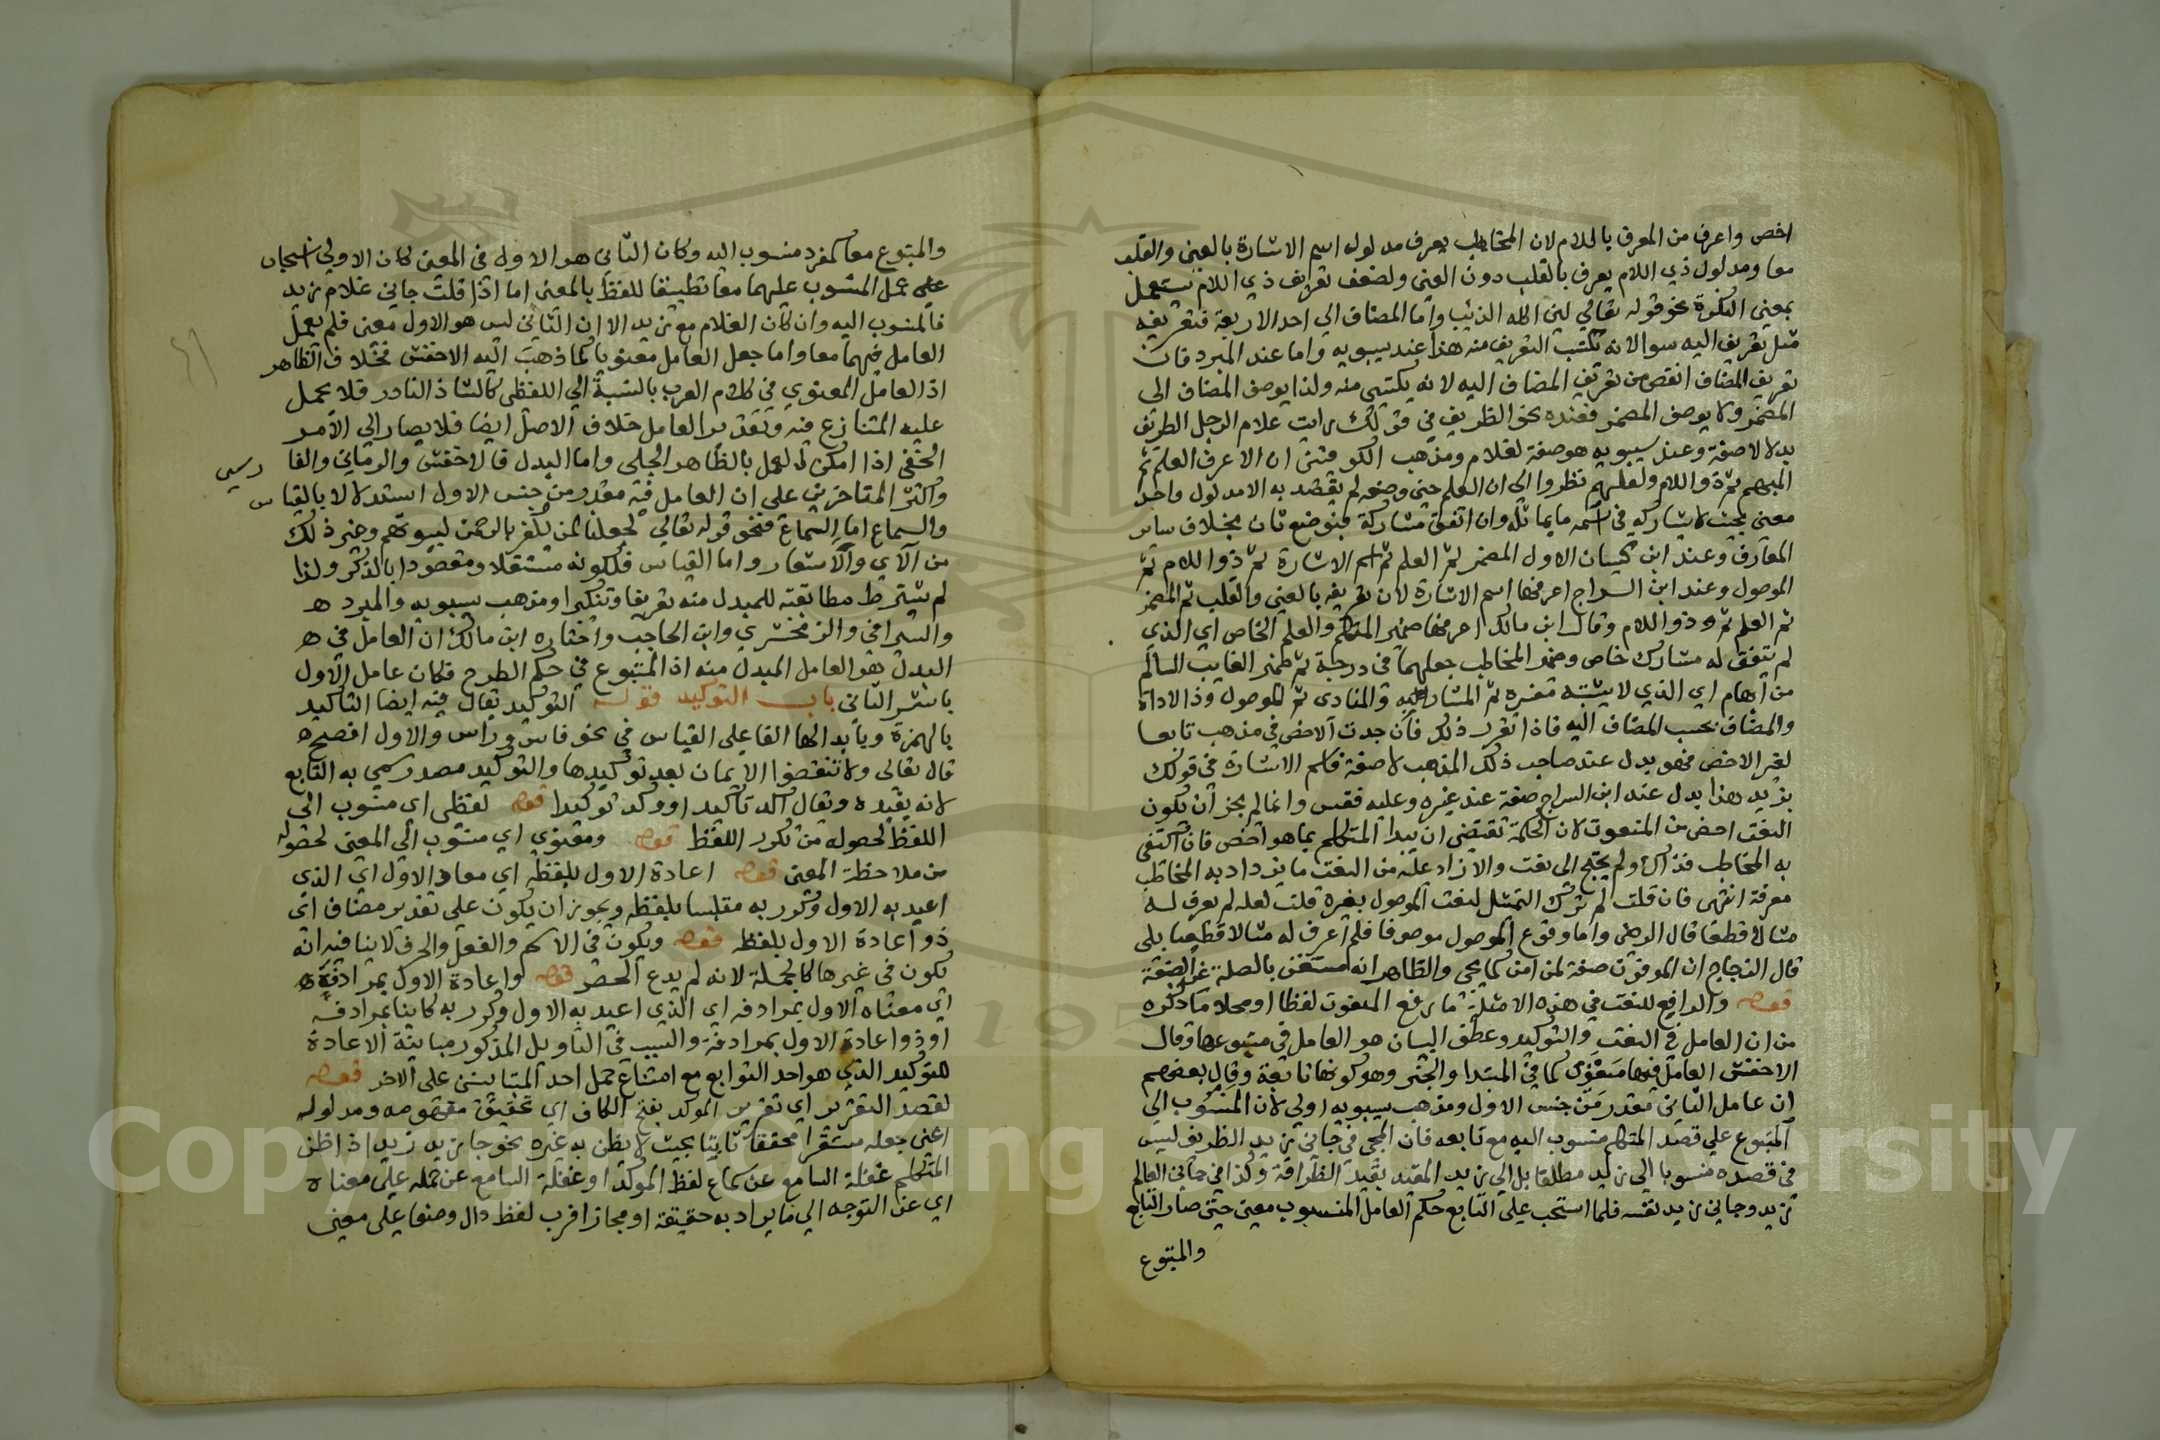 اخص واعرف من المعرف باللام لان المخاطب يعرف مدلول اسم الاشارة بالعين والقلب
معا ومدلول ذي اللام يعرف بالقلب دون العين ولضعف تعريف ذي اللام يستعمل
بمعنى النكرة نحو قوله تعالى لئن اكله الذئب واما المضاف الى احد الاربعة فتعريفه
مثل تعريف اليه سوا لانه يكتسب التعريف منه هذا عند سيبويه واما عند المبرد فان
تعريف المضاف انقص من تعريف المضاف اليه لانه يكتسي منه ولذا يوصف المضاف الى
المضمر ولا يوصف المضمر فعنده نحو الظريف في قولك رايت غلام الرجل الظريف
بدلا لا صفة وعند سيبويه هو صفة لغلام ومذهب الكوفيين ان الاعرف العلم ثم
المبهم ثم ذو اللام ولعلهم نظروا الى ان العلم حين وضعه لم يقصد به الا مدلول واحد
معين بحيث لا يشاركه في اسمه ما يماثله وان اتفق مشاركة فبوضع ثان بخلاف ساير
المعارف وعند ابن كيسان الاول المضمر ثم العلم ثم اسم الاشارة ثم ذو اللام ثم
الموصول وعند ابن السراج اعرفها اسم الاشارة لان تعريفه بالعين والقلب ثم المضمر
ثم العلم ثم ذو اللام وقال ابن مالك اعرفها ضمير المتكلم والعلم الخاص اي الذي
لم يتفق له مشارك خاص وضمير المخاطب جعلهما في درجة ثم ضمير الغايب السالم
من ابهام اي الذي لا يشتبه مفسره ثم المشار اليه والمنادى ثم الموصول وذا الاداة
والمضاف بحسب المضاف اليه فاذا تقرر ذلك فان جدت الاخص في مذهب تابعا
لغير الاخص فهو بدل عند صاحب ذلك المذهب لا صفة فاسم الاشارة في قولك
بزيد هذا بدل عند ابن السراج صفة عند غيره وعليه فقس وانما لم يجز ان يكون
النعت اخص من المنعوت لان الحكمة تقتضي ان يبدا المتكلم بما هو اخص فان اكتفى
به المخاطب فذاك ولم يحتج الى نعت والا زاد عليه من النعت ما يزداد به المخاطب
معرفة انتهى فان قلت لم ترك التمثيل لنعت الموصول بغيره قلت لعله لم يعرف له
مثالا قطعا قال الرضي واما وقوع الموصول موصوفا فلم اعرف له مثالا قطعيا بلى
قال الزجاج ان الموفون صفة لمن امن كما يجي والظاهر انه مستغن بالصلة عن الصفة
قوله والرافع للنعت في هذه الامثلة ما رفع المنعوت لفظا او محلا ما ذكره
من ان العامل في النعت والتوكيد وعطف البيان هو العامل في متبوعها وقال
الاخفش العامل فيها معنوي كما في المبتدا والخبر وهو كونها تابعة وقال بعضهم
ان عامل الثاني مقدر من جنس الاول ومذهب سيبويه اولى لان المنسوب الى
المتبوع على قصد المتكلم منسوب اليه مع تابعه فان المجي في جاني زيد الظريف ليس
في قصده منسوبا الى زيد مطلقا بل الى زيد المقيد بقيد الظرافة وكذا في جاني العالم
زيد وجاني زيد نفسه فلما انسحب على التابع حكم العامل المنسوب معنى حتى صار التابع
والمتبوع
والمتبوع معا كمفرد منسوب اليه وكان الثاني هو الاول في المعنى كان الاولى انسحاب
على عمل المنسوب عليهما معا تطبيقا للفظ بالمعنى اما اذا قلت جاني غلام زيد
فالمنسوب اليه وان كان الغلام مع زيد الا ان الثاني ليس هو الاول معنى فلم يعمل
العامل فيهما معا واما جعل العامل معنويا كما ذهب اليه الاخفش فخلاف الظاهر
اذ العامل المعنوي في كلام العرب بالنسبة الى اللفظي كالشاذ النادر فلا يحمل
عليه المتنازع فيه وتقدير العامل خلاف الاصل ايضا فلا يصار الى الامر
الخفي اذا امكن العمل بالظاهر الجلي واما البدل فالاخفش والرماني والفا
رسي
واكثر المتاخرين على ان العامل فيه مقدر من جنس الاول استدلالا بالقياس
والسماع اما السماع فنحو قوله تعالى لجعلنا لمن يكفر بالرحمن لبيوتهم وغير ذلك
من الاي والاشعار واما القياس فلكونه مستقلا ومقصودا بالذكر ولذا
لم يشترط مطابقته للمبدل منه تعريفا وتنكيرا ومذهب سيبويه والمبرد
والسيرافي والزمخشري وابن الحاجب واختاره ابن مالك ان العامل في
البدل هو العامل المبدل منه اذ المتبوع في حكم الطرح فكان عامل الاول
باشر الثاني باب التوكيد قوله التوكيد يقال فيه ايضا التاكيد
بالهمزة وبابدالها الفا على القياس في نحو فاس وراس والاول افصح
قال تعالى ولا تنقضوا الايمان بعد توكيدها والتوكيد مصدر سمي به التابع
لانه يفيده ويقال اكد تاكيدا ووكد توكيدا قوله لفظي اي منسوب الى
اللفظ لحصوله من تكرر اللفظ قوله ومعنوي اي منسوب الى المعنى لحصوله
من ملاحظة المعنى قوله اعادة الاول بلفظه اي معاد الاول اي الذي
اعيد به الاول وكرر به متلبسا بلفظه ويجوز ان يكون على تقدير مضاف اي
ذو اعادة الاول بلفظه قوله ويكون في الاسم والفعل والحرف لا ينافيه انه
يكون في غيرها كالجملة لانه لم يدع الحصر قوله واعادة الاول بمرادفه
اي معناه الاول بمرادفه اي الذي اعيد به الاول وكرر به كاينا بمرادفه
او ذو اعادة الاول بمرادفه والسبب في التاويل المذكور مباينة الاعادة
للتوكيد الذي هو احد التوابع مع امتناع حمل احد المتباينين على الاخر قوله
لقصد التقرير اي تقرير الموكد بفتح الكاف اي تحقيق مفهومه ومدلوله
اعني جعله مستقرا محققا ثابتا بحيث لا يظن به غيره نحو جا زيد زيد اذا ظن
المتكلم غفلة السامع عن سماع لفظ الموكد او غفلة السامع عن حمله على معناه
اي عن التوجه الى ما يراد به حقيقة او مجازا فرب لفظ دال وضعا على معنى
Copy King University
195